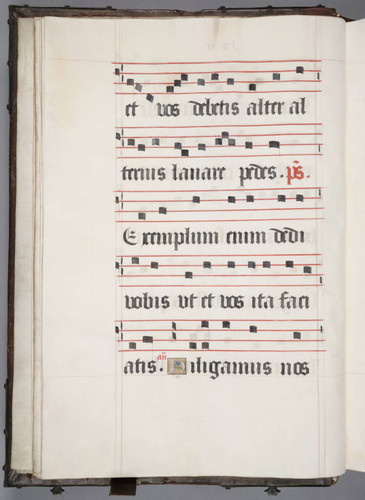 et vos debetis alter al
terius lauare pedes. ps.
Exemplum enim dedi
vobis vt et vos ita faci
atis. an Diligamus nos